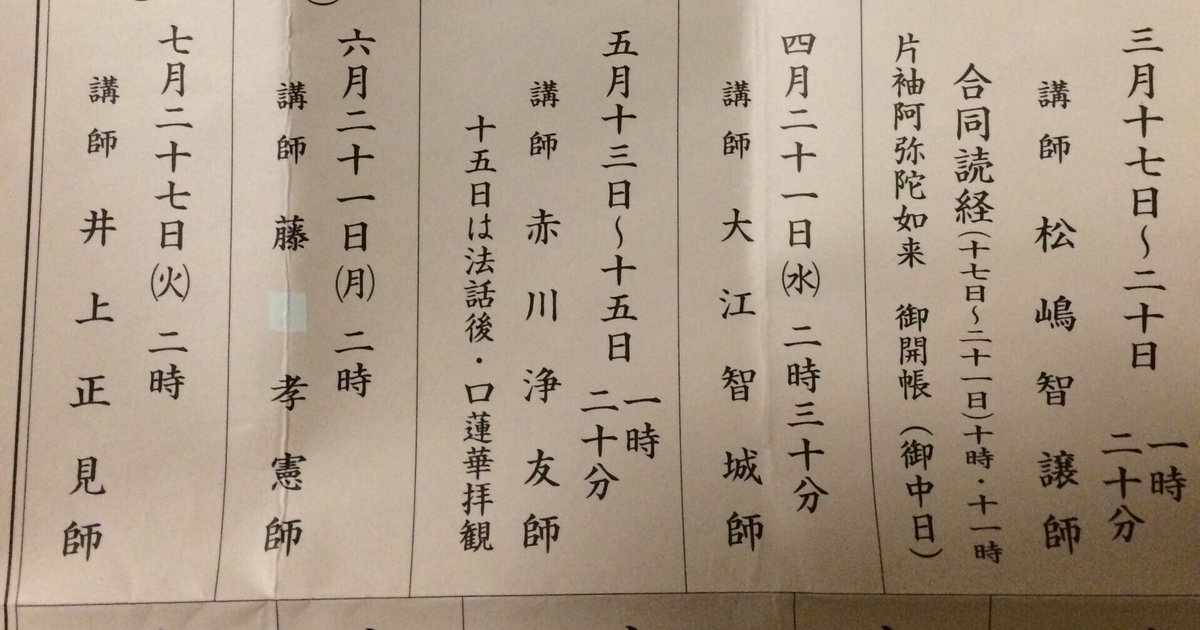 三月十七日～二十日
一時
二十分
講師 松嶋智譲師
合同読経(十七日～二十一日)十時・十一時
片袖阿弥陀如来 御開帳(御中日)
四月二十一日㈬ 二時三十分
講師 大江智城師
五月十三日～十五日
一時
二十分
講師 赤川浄友師
十五日は法話後・口蓮華拝観
六月二十一日㈪ 二時
講師 藤 孝憲師
七月二十七日㈫ 二時
講師 井上正見師